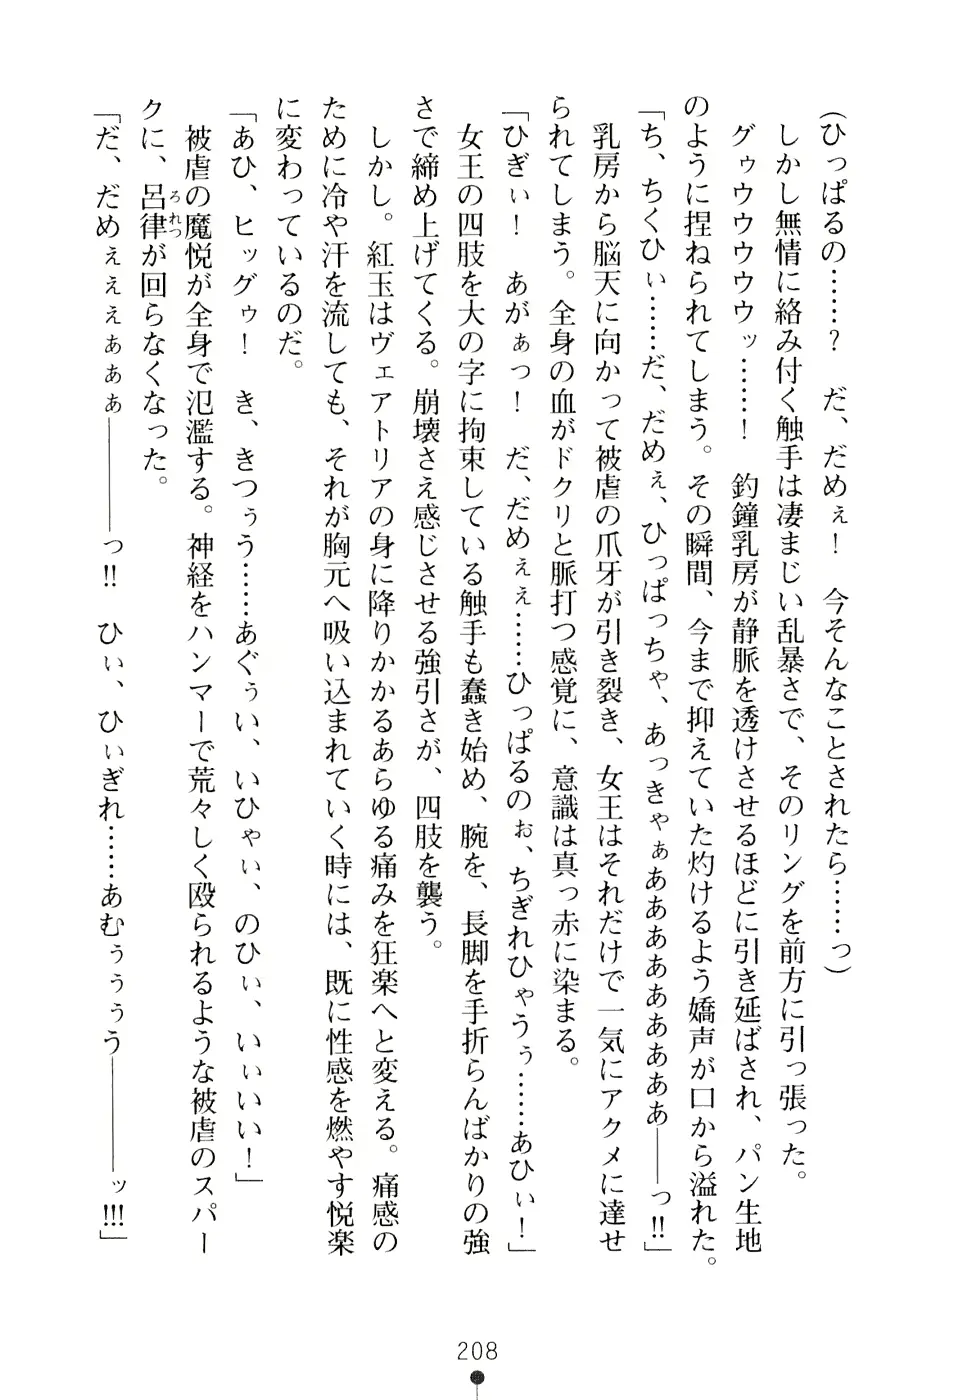 （ひっぱるの……？　だ、だめぇ！　今そんなことされたら……っ）
　しかし無情に絡み付く触手は凄まじい乱暴さで、そのリングを前方に引っ張った。
　グゥウウウウウッ……！　釣鐘乳房が静脈を透けさせるほどに引き延ばされ、パン生地
のように捏ねられてしまう。その瞬間、今まで抑えていた灼けるよう嬌声が口から溢れた。
「ち、ちくひぃ……だ、だめぇ、ひっぱっちゃ、あっきゃぁあああああああああ――っ!!」
　乳房から脳天に向かって被虐の爪牙が引き裂き、女王はそれだけで一気にアクメに達せ
られてしまう。全身の血がドクリと脈打つ感覚に、意識は真っ赤に染まる。
「ひぎぃ！　あがぁっ！　だ、だめぇぇ……ひっぱるのぉ、ちぎれひゃうぅ……あひぃ！」
　女王の四肢を大の字に拘束している触手も蠢き始め、腕を、長脚を手折らんばかりの強
さで締め上げてくる。崩壊さえ感じさせる強引さが、四肢を襲う。
　しかし。紅玉はヴェアトリアの身に降りかかるあらゆる痛みを狂楽へと変える。痛感の
ために冷や汗を流しても、それが胸元へ吸い込まれていく時には、既に性感を燃やす悦楽
に変わっているのだ。
「あひ、ヒッグゥ！　き、きつぅう……あぐぅい、いひゃぃ、のひぃ、いぃいい！」
　被虐の魔悦が全身で氾濫する。神経をハンマーで荒々しく殴られるような被虐のスパー
クに、呂律ろれつが回らなくなった。
「だ、だめぇぇぇぁぁぁ――――っ!!　ひぃ、ひぃぎれ……あむぅぅぅう――――ッ!!!」
208